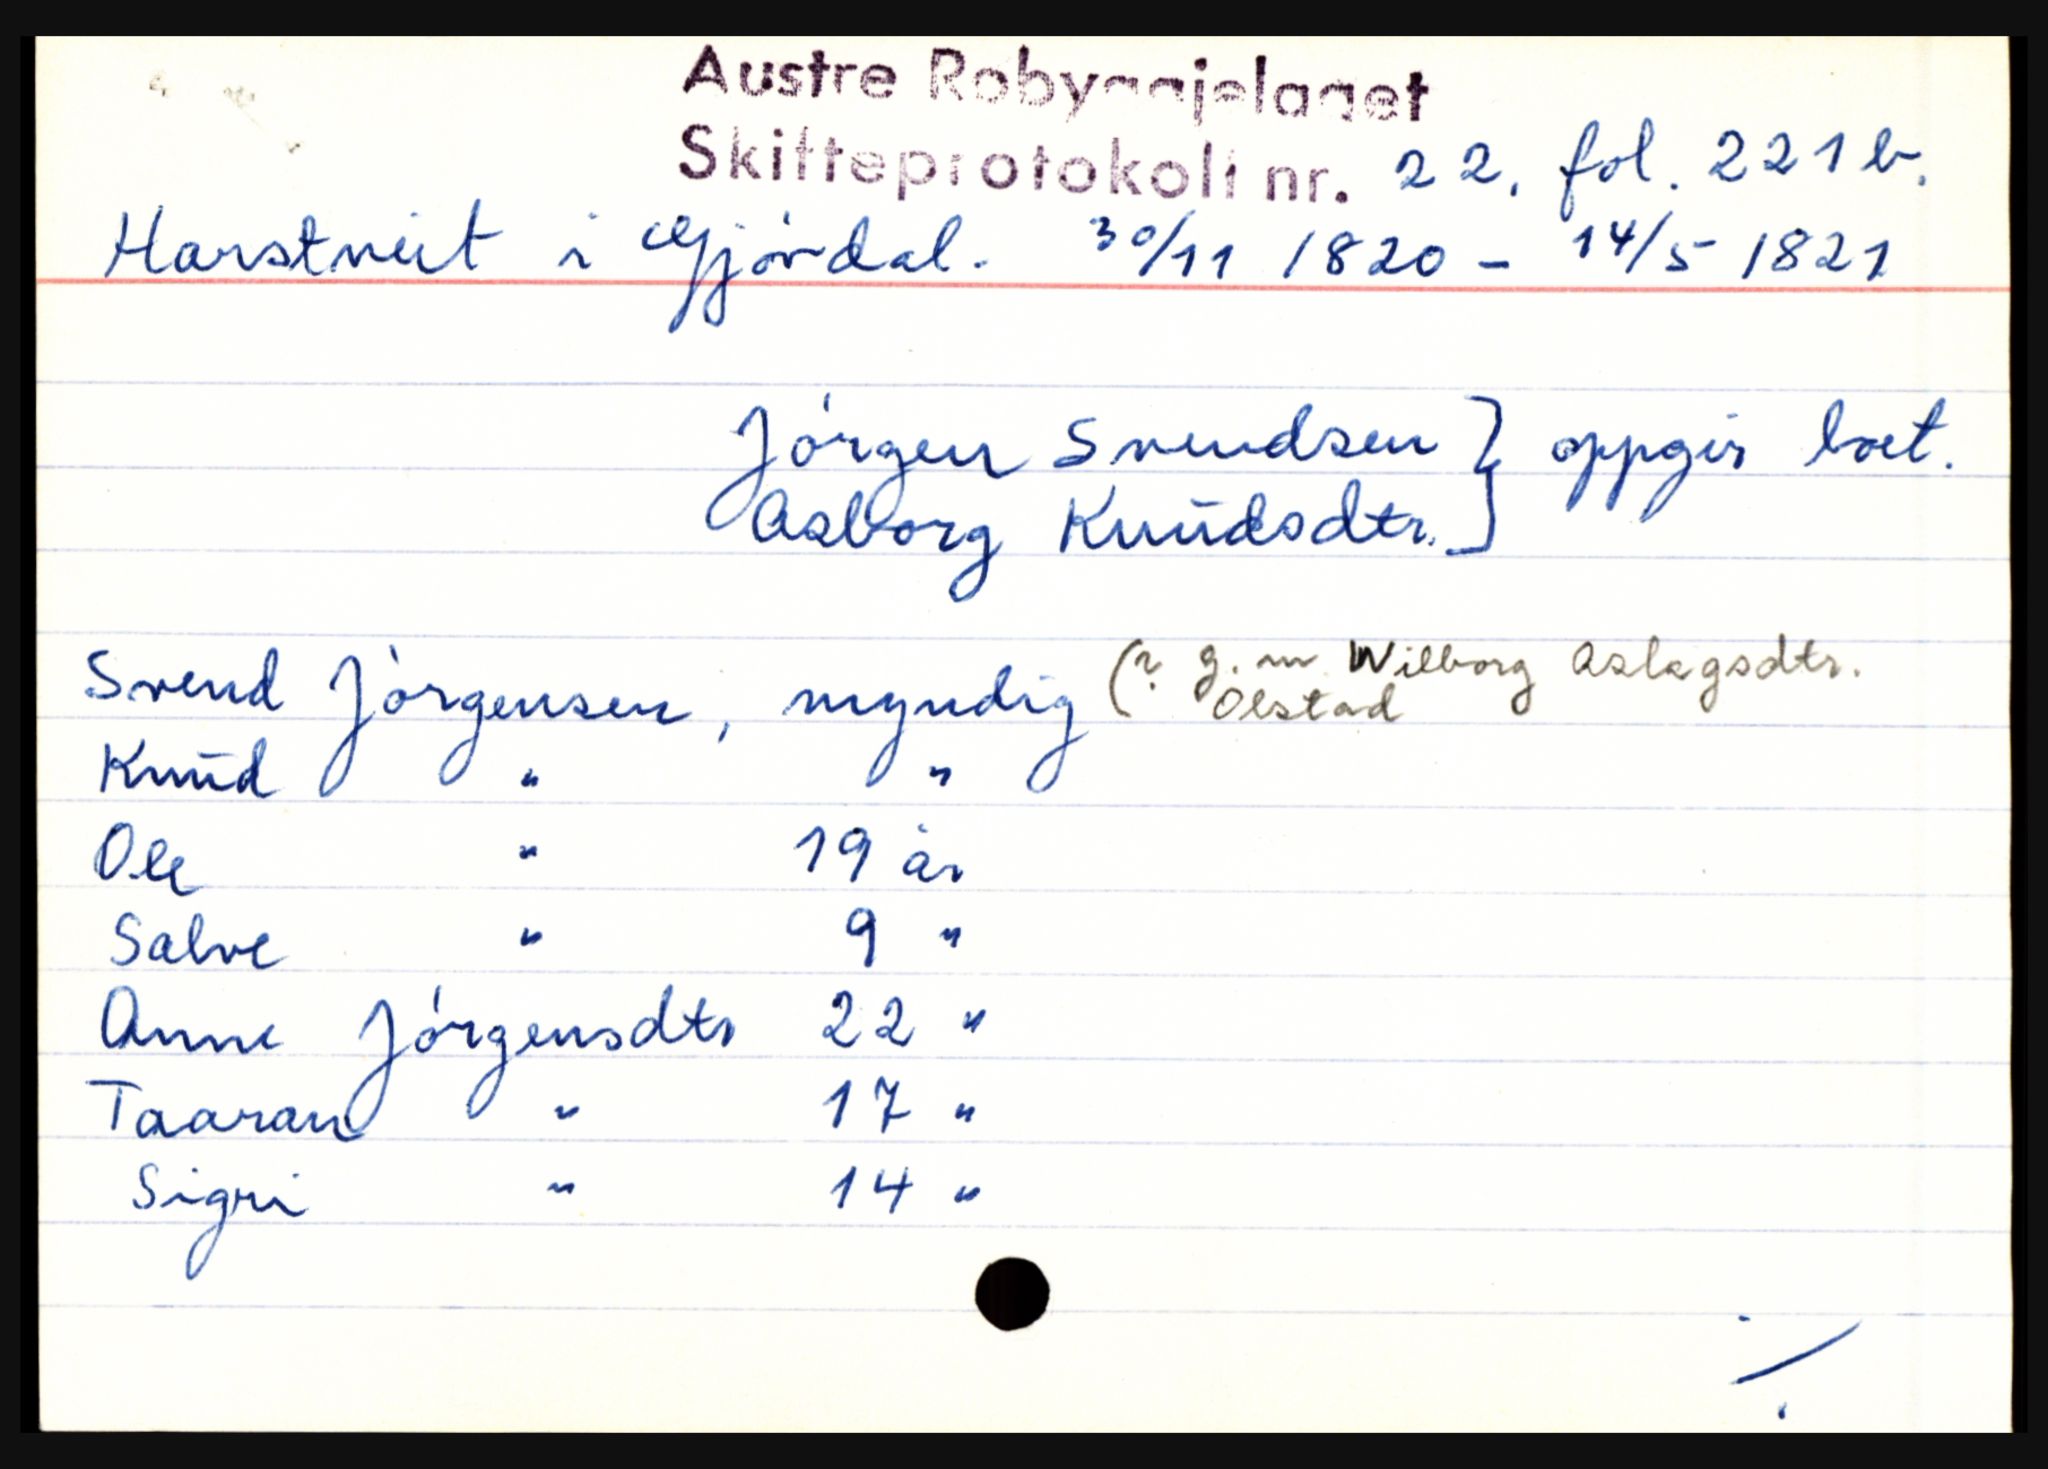 Austre Robyggjelaget
Skifteprotokoll nr. 22. fol. 221 b.
Harstveit i Gjövdal. 30/11 1820 - 14/5 1821
Jörgen Svendsen } oppgir boet.
Asborg Knudsdtr. }
Svend Jörgensen, myndig (? g. m. Wilborg Aslagsdtr.
Olstad
Knud " "
Ole " 19 år
Salve " 9 "
Anne Jörgensdtr 22 "
Taaran " 17 "
Sigri " 14 "
·/.